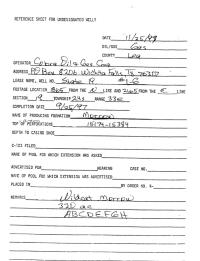 REFERENCE SHEET FOR UNDESIGNATED WELLS
DATE 11/25/97
OIL/GAS Gas
COUNTY Lea
OPERATOR Cobra Oil & Gas Corp
ADDRESS PO Box 8206 Wichita Falls, TX 76307
LEASE NAME, WELL NO. State R #1-G
FOOTAGE LOCATION FROM THE N LINE AND FROM THE E LINE
SECTION 19 TOWNSHIP RANGE 33E
COMPLETION DATE
NAME OF PRODUCING FORMATION Morrow
TOP OF PERFORATIONS 15174-15384
DEPTH TO CASING SHOE
C-123 FILED
NAME OF POOL FOR WHICH EXTENSION WAS ASKED
ADVERTISED FOR HEARING CASE NO.
NAME OF POOL FOR WHICH EXTENSION WAS ADVERTISED
PLACED IN BY ORDER NO. R-
REMARKS Wildcat Morrow
320 ac
ABCDEFGH